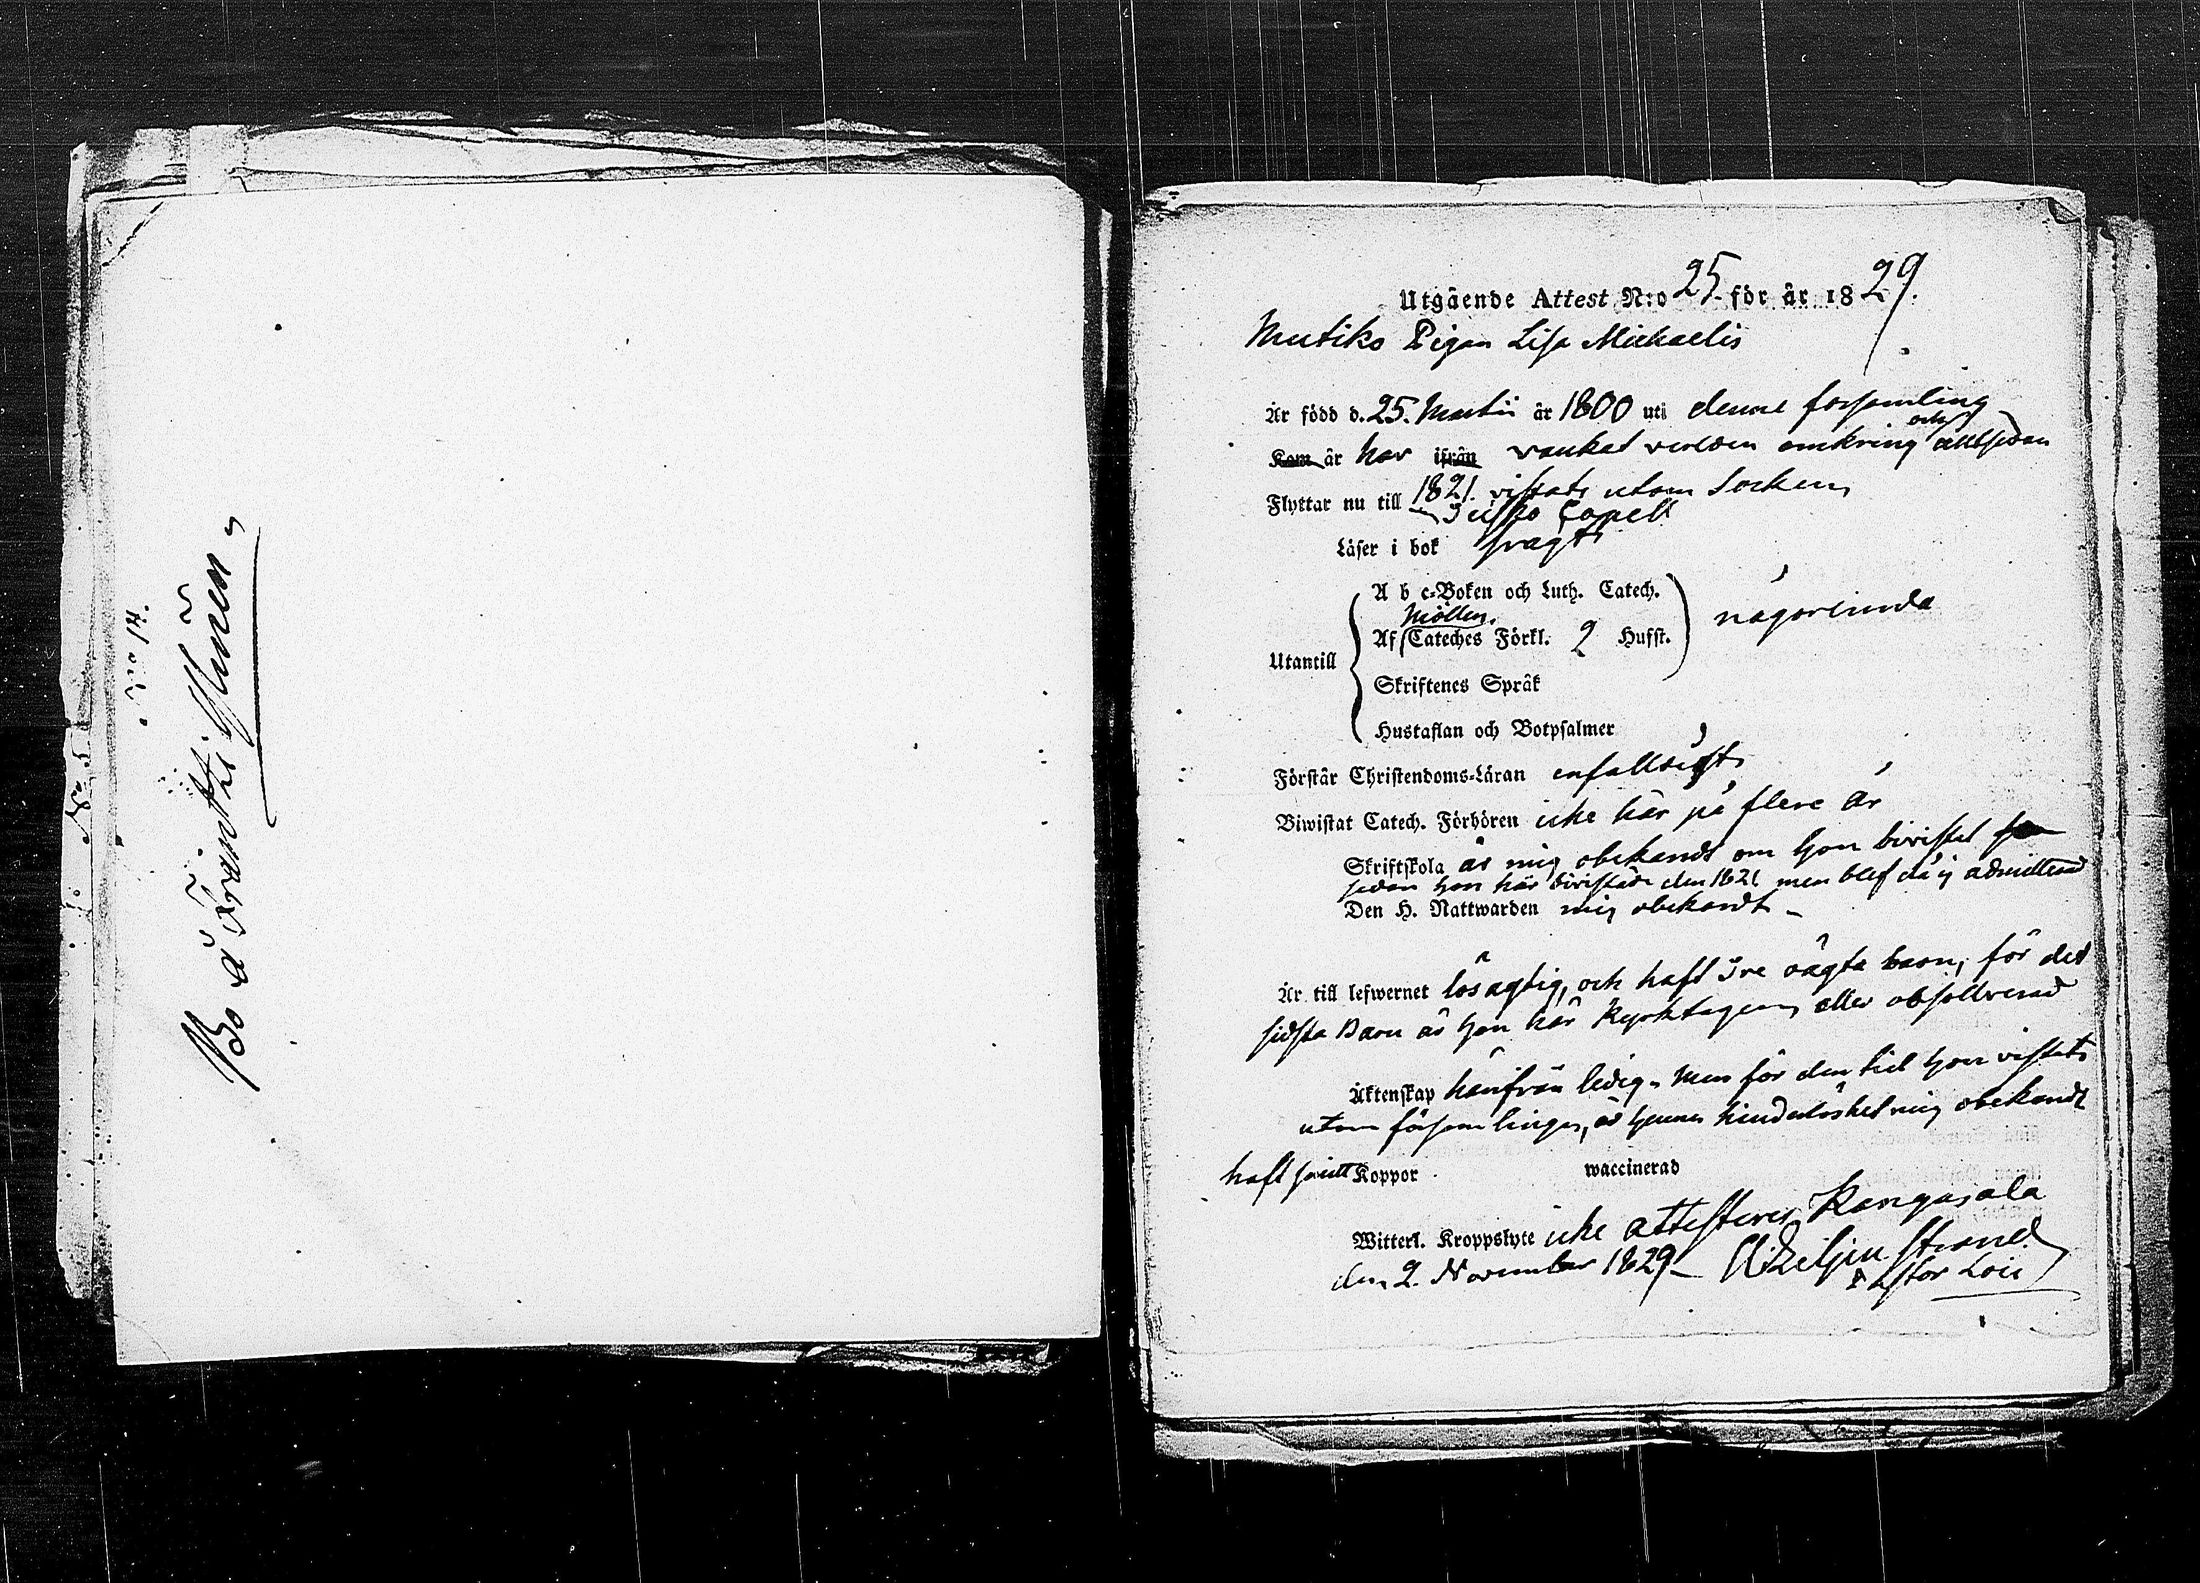 Bo å Fräntti
Utgående Attest N:o 25 för år 1829.
Mutiko Pigan Lisa Michaelis
Är född d. 25. Martii år 1800 uti denne församling
Kom år har ifrån vankat verlden omkring och alltsedan
Flyttar nu till 1821. vistats utom Socken
Capell
Läser i bok svagt
A b c-Boken och Luth. Catech.
Möllen.
någorlunda
Af Cateches Förkl. 2 Hufst.
Utantill
Skriftenes Språk
Hustaflan och Botpsalmer
Förstår Christendoms-Läran enfalldigt
Biwistat Catech. Förhören icke här på flere år
Skriftskola är mig obekandt om hon bivistat
sedan hon här bivistade den 1821 men blef då ej admitterad
Den H. Nattwarden mig obekandt
Är till lefwernet lösagtig, och haft tre oägta barn, för det
sidsta Barn är hon här kyrktagen eller absolverad
Äktenskap härifrån ledig. Men för den tid hon vistats
utom församlingen, är hennes hinderlöshet mig obekandt
haft Koppor waccinerad
Witterl. Kroppslyte icke attesteres Kangasala
den 2. November 1829 Liljenstrand
Pastor Loci